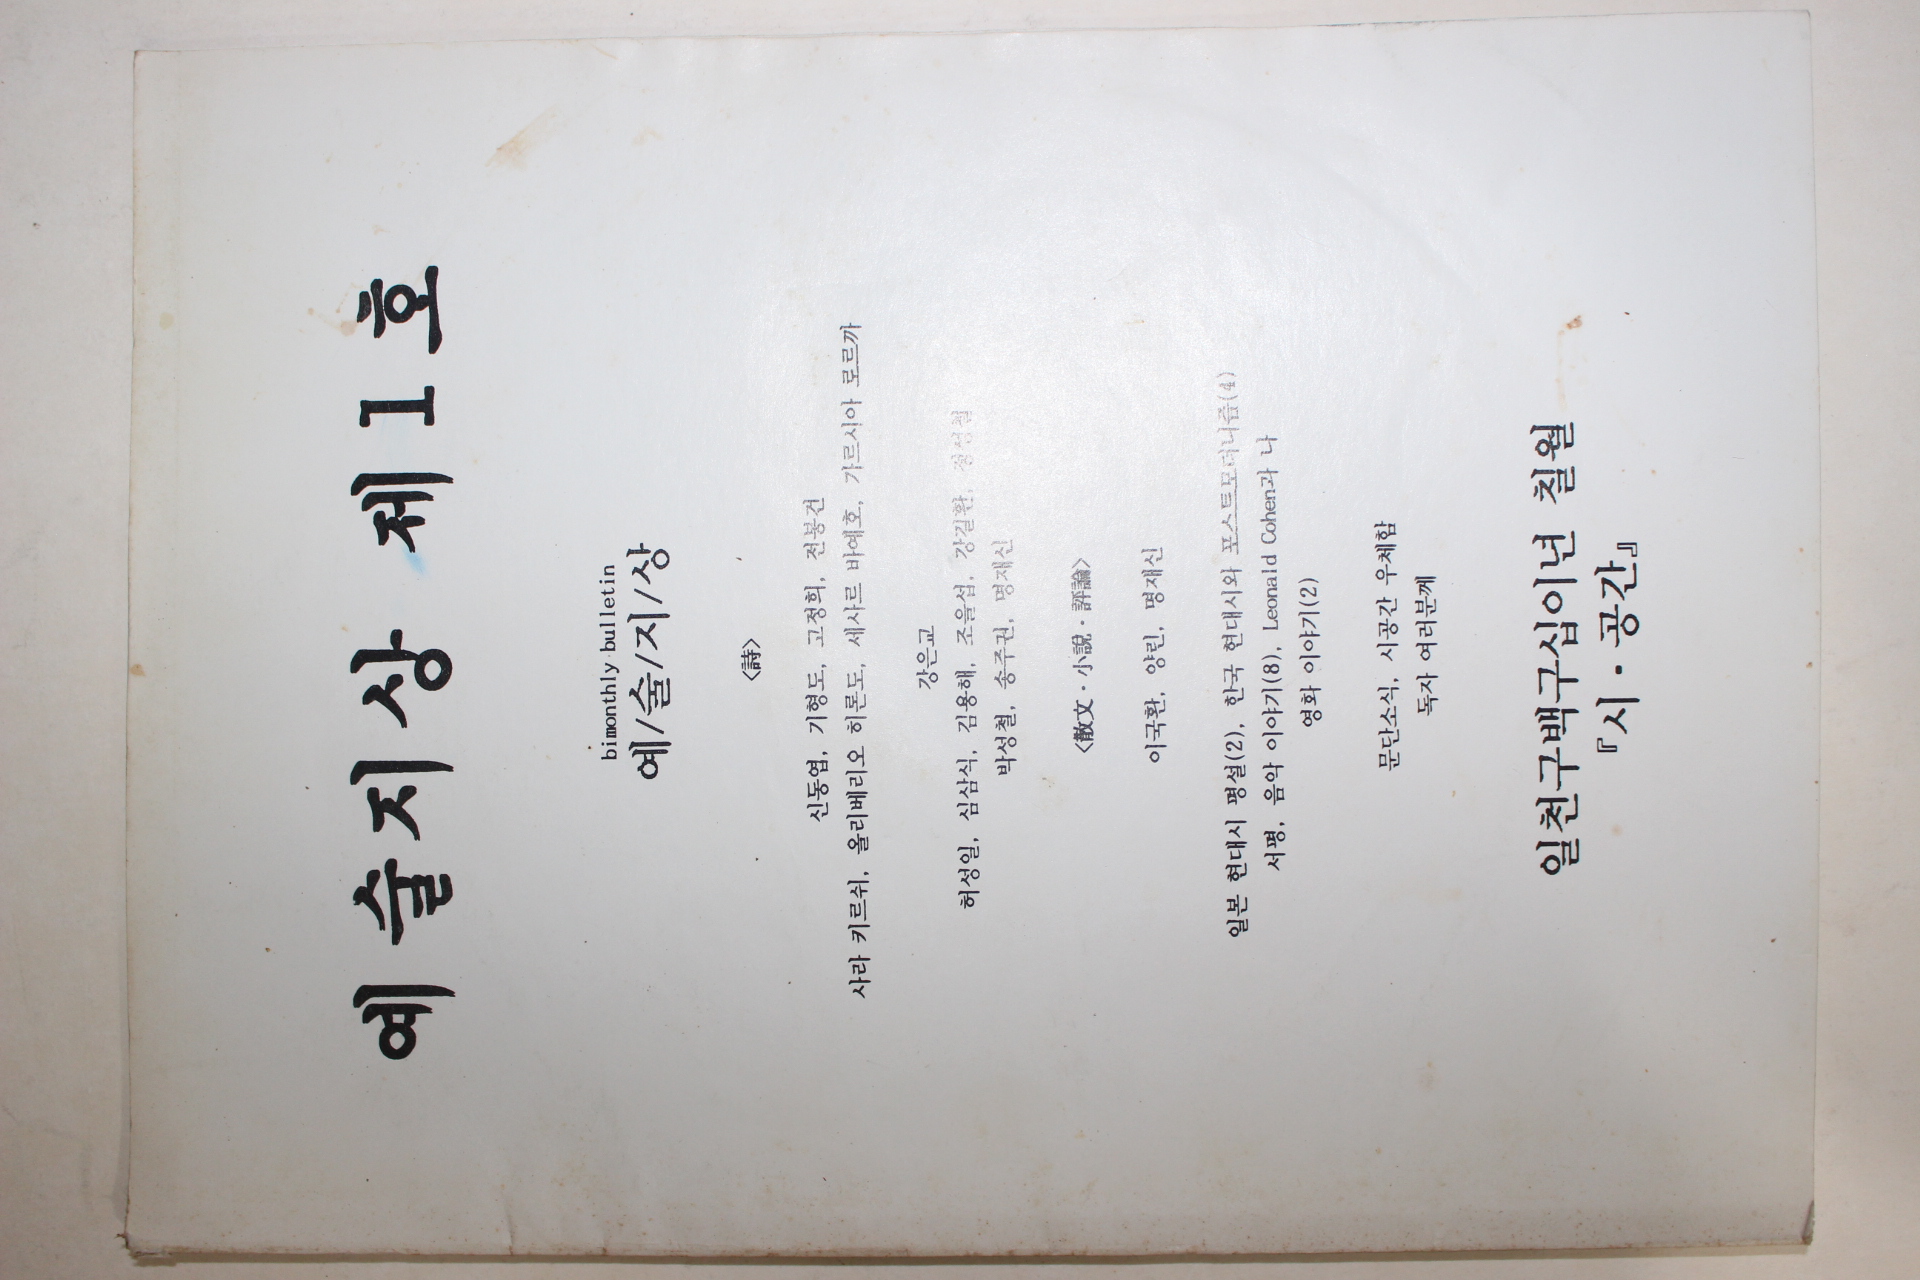 예술지상 제1호
bimonthly bulletin
예/술/지/상
<詩>
신동엽, 기형도, 고정희, 전봉건
사라 키르쉬, 올리베리오 히론도, 세사르 바예호, 가르시아 로르까
강은교
허성일, 심삼식, 김용해, 조을섭, 강길환, 정성철
박성철, 송주권, 명재신
<散文·小說·評論>
이국환, 양린, 명재신
일본 현대시 평설(2), 한국 현대시와 포스트모더니즘(4)
서평, 음악 이야기(8), Leonald Cohen과 나
영화 이야기(2)
문단소식, 시공간 우체함
독자 여러분께
일천구백구십이년 칠월
『시·공간』